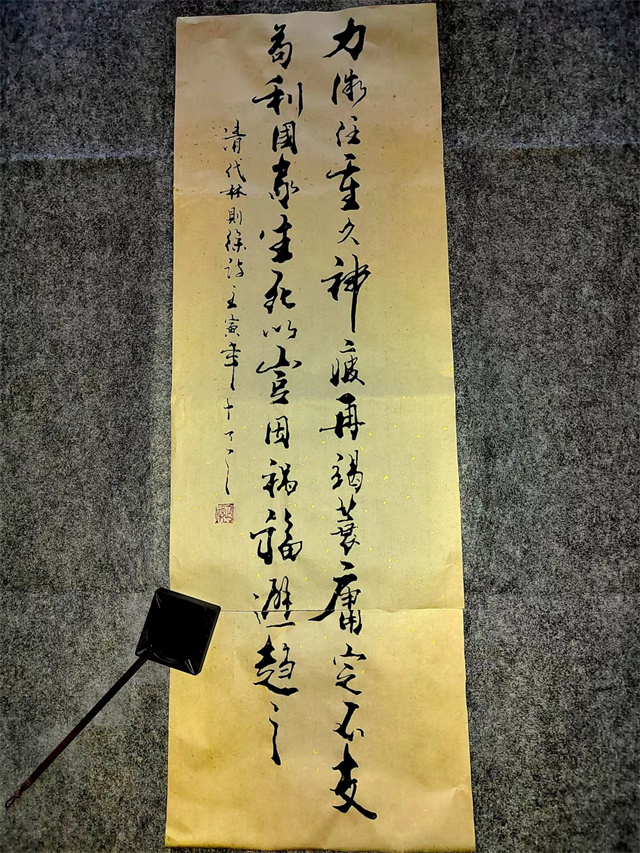 力微任重久神疲再竭衰庸定不支
苟利國家生死以豈因禍福避趨之
清代林則徐詩壬寅年